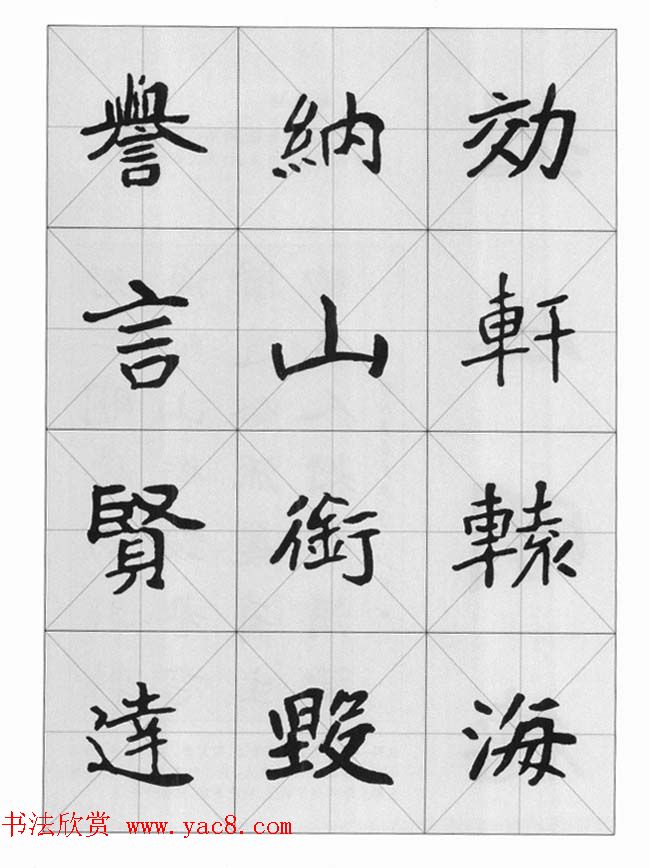 効軒轅海
納山銜毀
譽言賢達
书法欣赏 www.yac8.com